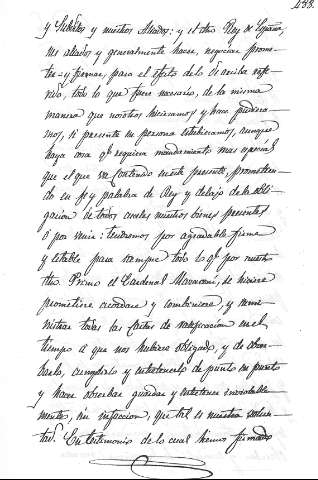 433.
y Subditos y nuestros Aliados: y el dho Rey de España,
sus aliados y generalmente hacer, negociar prome-
ter y firmar, para el efeto delo de arriba refe-
rido, todo lo que fuere necesario, de la misma
manera que nosotros hiciéramos y hacer pudiera-
mos, si presente en persona estubieramos, aunque
haya cosa qe requiera mandamiento mas especial
que el que va contenido en este presente, prometien-
do en fe y palabra de Rey y debajo de la obli-
gacion de todos cuales nuestros bienes presentes
ó por venir: tendremos por agradable firme
y estable para siempre todo lo qe por nuestro
dho Primo el Cardenal Mazarini, se hiciere
prometiere acordare y combiniere, y sumi-
nistrar todas las Cartas de ratificacion en el
tiempo á que nos hubiere obligado, y de obser-
barlo, cumplirlo y entretenerlo de punto en punto
y hacer observar guardar y entretener inviolable-
mente, sin infraccion, que tal es nuestra volun-
tad. En testimonio de lo cual hemos firmado